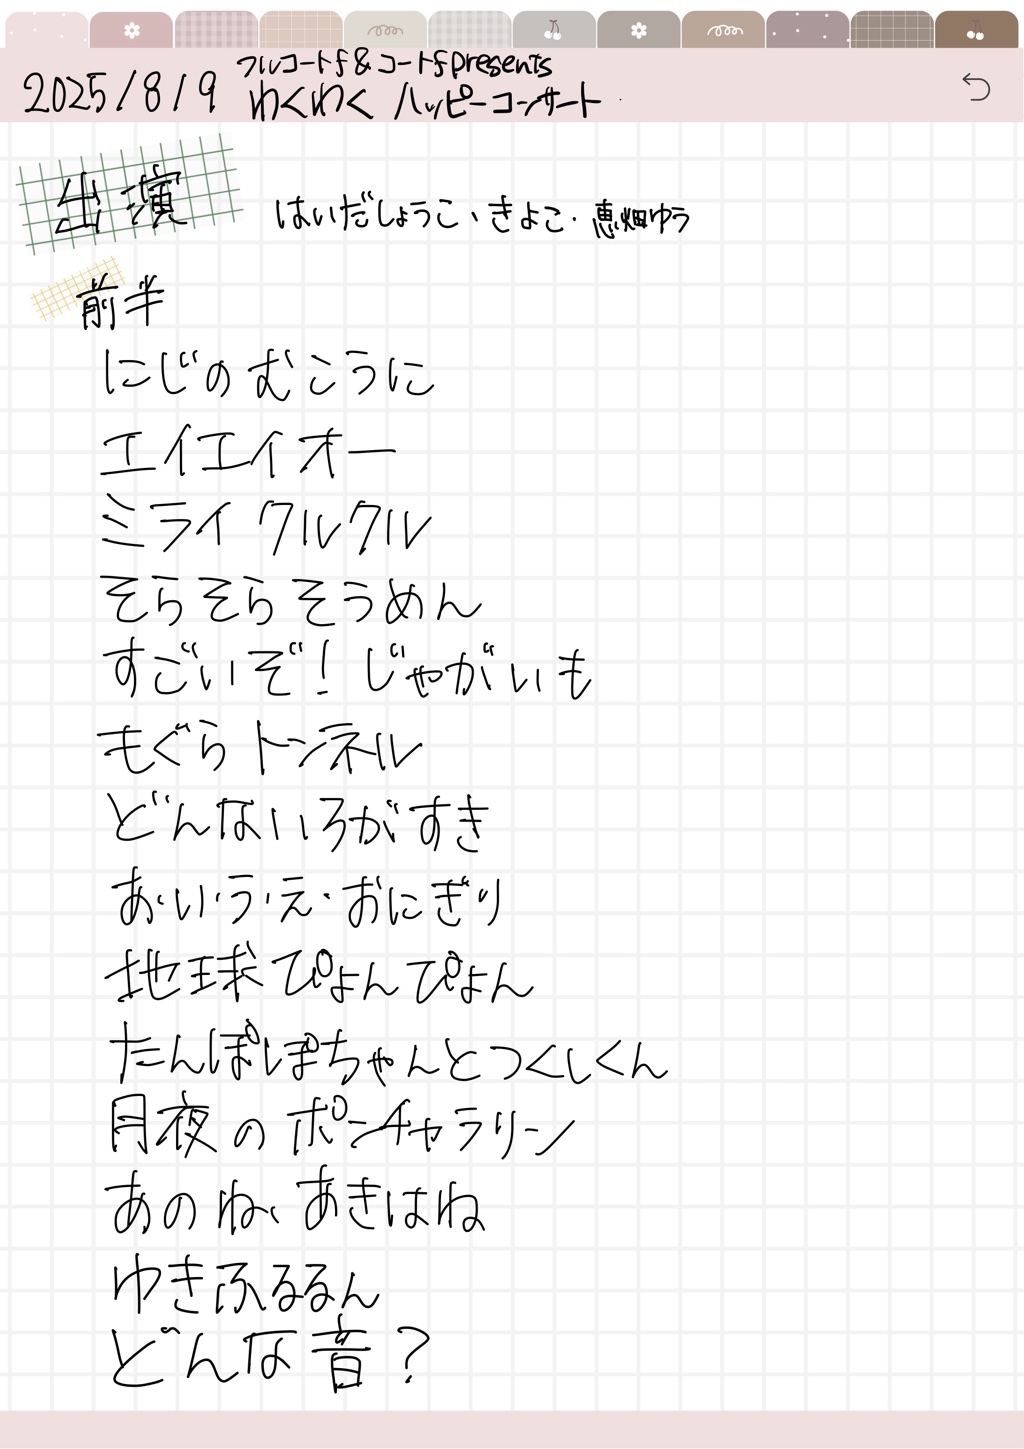 フルコートf&コートfpresents
2025/8/9 わくわく ハッピーコンサート
出演 はいだしょうこ、きよこ・恵畑ゆう
前半
にじのむこうに
エイエイオー
ミライクルクル
そらそらそうめん
すごいぞ！じゃがいも
もぐらトンネル
どんないろがすき
あ・い・う・え・おにぎり
地球ぴょんぴょん
たんぽぽちゃんとつくしくん
月夜のポンチャラリン
あのね、あきはね
ゆきふるるん
どんな音？